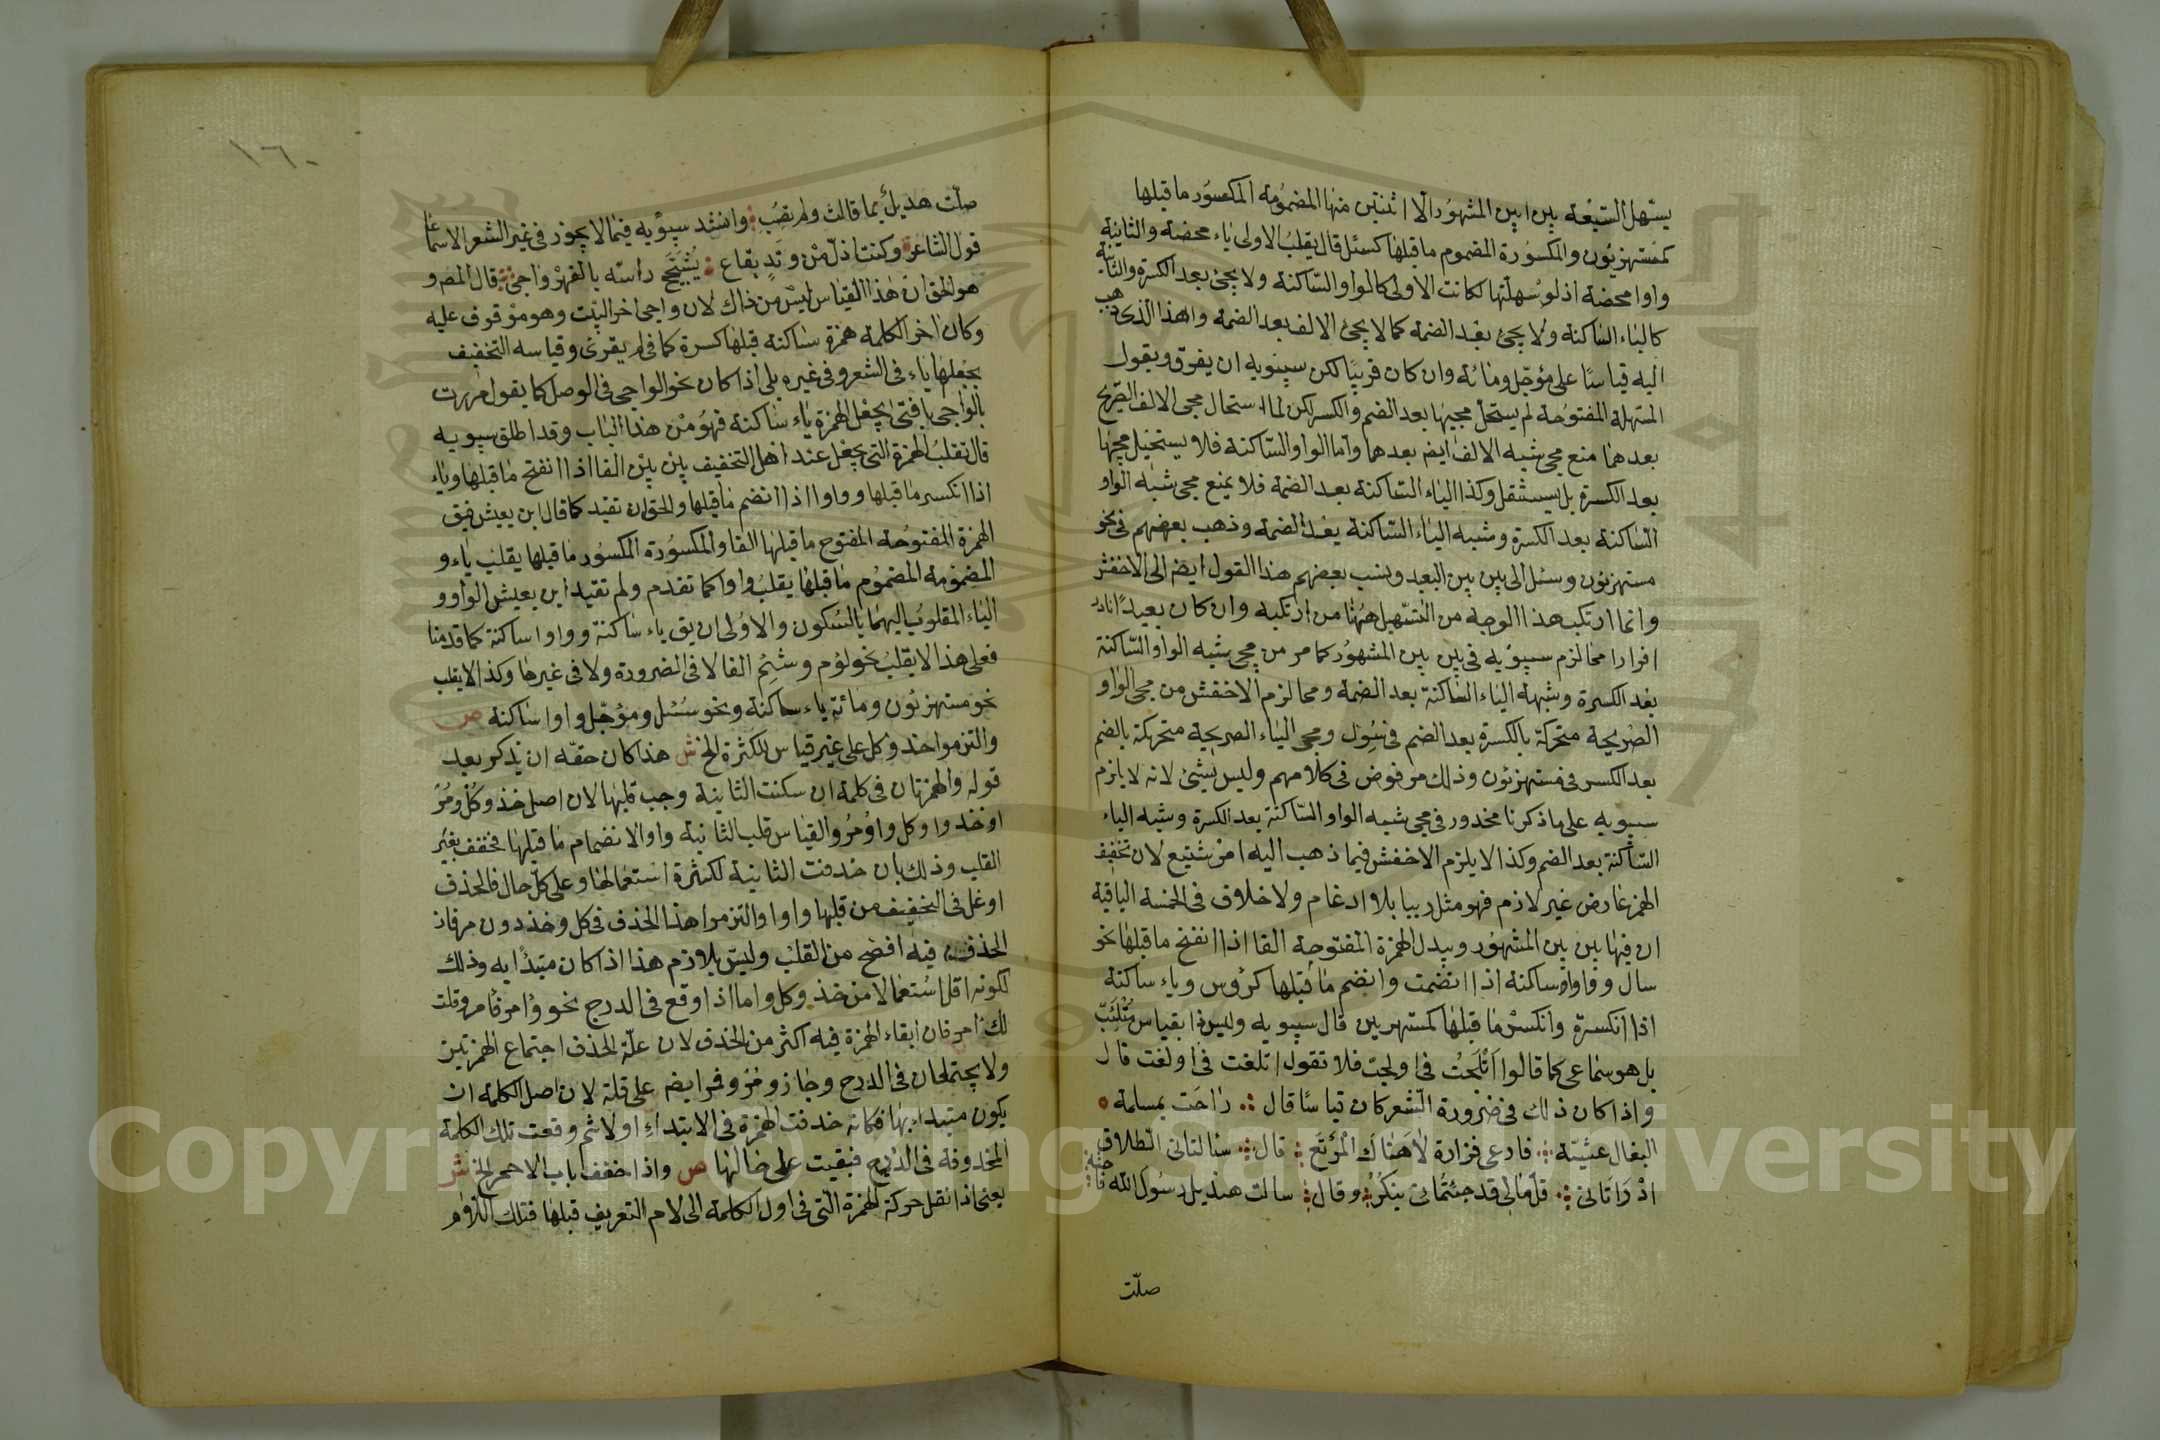 يسهل السبعة بين بين المشهور الا اثنتين منها المضمومة المكسور ما قبلها
كمستهزئون والمكسورة المضموم ما قبلها كسئل قال يقلب الاولى ياء محضة والثانية
واوا محضة اذ لو سهلتها لكانت الاولى كالواو الساكنة ولا يجئ بعد الكسرة والثانية
كالياء الساكنة ولا يجئ بعد الضمة كما لا يجئ الالف بعد الضمة وهذا الذي ذهب
اليه قياسا على مؤجل ومائة وان كان قريبا لكن سيبويه ان يفرق ويقول
المسهلة المفتوحة لم يستحل مجيها بعد الضم والكسر لكن لما استحال مجئ الالف الصريح
بعدهما منع مجئ شبه الالف ايض بعدهما واما الواو الساكنة فلا يستحيل مجيها
بعد الكسرة بل يستثقل وكذا الياء الساكنة بعد الضمة فلا يمنع مجئ شبه الواو
الساكنة بعد الكسرة وشبه الياء الساكنة بعد الضمة وذهب بعضهم في نحو
مستهزئون وسئل الى بين بين البعيد ونسب بعضهم هذا القول ايض الى الاخفش
وانما ارتكب هذا الوجه من التسهيل ههنا من ارتكبه وان كان بعيدا نادرا
فرارا مما لزم سيبويه في بين بين المشهور كما مر من مجئ شبه الواو الساكنة
بعد الكسرة وشبه الياء الساكنة بعد الضمة ومما لزم الاخفش من مجئ الواو
الصريحة متحركة بالكسرة بعد الضم في سُوِل ومجئ الياء الصريحة متحركة بالضم
بعد الكسر في مستهزئون وذلك مرفوض في كلامهم وليس بشئ لانه لا يلزم
سيبويه على ما ذكرنا محذور في مجئ شبه الواو الساكنة بعد الكسرة وشبه الياء
الساكنة بعد الضم وكذا لا يلزم الاخفش فيما ذهب اليه امر شنيع لان تخفيف
الهمز عارض غير لازم فهو مثل رييا بلا ادغام ولا خلاف في الخمسة الباقية
ان فيها بين بين المشهور ويبدل الهمزة المفتوحة الفا اذا انفتح ما قبلها نحو
سال وواوا ساكنة اذا انضمت وانضم ما قبلها كرؤس وياء ساكنة
اذا انكسرة وانكسر ما قبلها كمستهزيين قال سيبويه وليس ذا بقياس مُتْلَئِبّ
بل هو سماعي كما قالوا اَتْلَجْتُ في اولجت فلا تقول اتلغت في اولغت قال
واذا كان ذلك في ضرورة الشعر كان قياسا قال راحَت بمسلمة
البغال عشية فارعى فزارة لا هَناك المَرْتَع قال سالتاني الطلاق
اذْ رَاتاني قلّ مالي قد جئتماني بنكر وقال سالت هذيل رسول الله فاحشة
صلّت
١٦٠
ضلّت هذيل بما قالت ولم تصب وانشد سيبويه فيما لا يجوز في غير الشعر الا سماعا
قول الشاعر وكنت اذل من وَتَدٍ بقاع يُشَجِّج راسَه بالفهر واجئ قال المصـ و
هو الحق ان هذا القياس ليس من ذاك لان واجئ اخر البيت وهو موقوف عليه
وكان اخر الكلمة همزة ساكنة قبلها كسرة كما في لم يقرئ وقياسه التخفيف
بجعلها ياء في الشعر وفي غيره بلى اذا كان نحو الواجي في الوصل كما يقول مررت
بالواجي يا فتى بجعل الهمزة ياء ساكنة فهو من هذا الباب وقد اطلق سيبويه
قال تقلب الهمزة التي يجعل عند اهل التخفيف بين بين الفا اذا انفتح ما قبلها وياء
اذا انكسر ما قبلها وواوا اذا انضم ما قبلها والحق ان تقيد كما قال ابن يعيش فيق
الهمزة المفتوحة المفتوح ما قبلها الفا والمكسورة المكسور ما قبلها يقلب ياء و
المضمومة المضموم ما قبلها يقلب واوا كما تقدم ولم تقيد ابن يعيش الواو و
الياء المقلوب اليهما بالسكون والاولى ان يق ياء ساكنة وواوا ساكنة كما قدمنا
فعلى هذا لا يقلب نحو لؤم وسئم الفا لا في الضرورة ولا في غيرها وكذا لا يقلب
نحو مستهزئون ومائة ياء ساكنة ونحو سئل ومؤجل واوا ساكنة ص
والتزموا خذ وكل على غير قياس للكثرة الخ ش هذا كان حقه ان يذكر بعد
قوله والهمزتان في كلمة ان سكنت الثانية وجب قلبها لان اصل خذ وكُلْ ومُرْ
اوخذ واوكل واوْمُرْ والقياس قلب الثانية واوا لانضمام ما قبلها فخفف بغير
القلب وذلك بان حذفت الثانية لكثرة استعمالها وعلى كل حال فالحذف
اوغل في التخفيف من قلبها واوا والتزموا هذا الحذف في كل وخذ دون مر فان
الحذف فيه افصح من القلب وليس بلازم هذا اذا كان مبتدأ به وذلك
لكونه اقل استعمالا من خذ وكل واما اذا وقع في الدرج نحو وأمر فأمر وقلت
لك اأمر فان ابقاء الهمزة فيه اكثر من الحذف لان علة الحذف اجتماع الهمزتين
ولا يجتمعان في الدرج وجاز ومُرْ وفمر ايضم على قلة لان اصل الكلمة ان
يكون مبتداء بها فكانه حذفت الهمزة في الابتداء اولا ثم وقعت تلك الكلمة
المحذوفة في الدرج فبقيت على حالها ص واذا خفف باب الاحمر الخ ش
يعني اذا نقل حركة الهمزة التي في اول الكلمة الى لام التعريف قبلها فتلك اللام